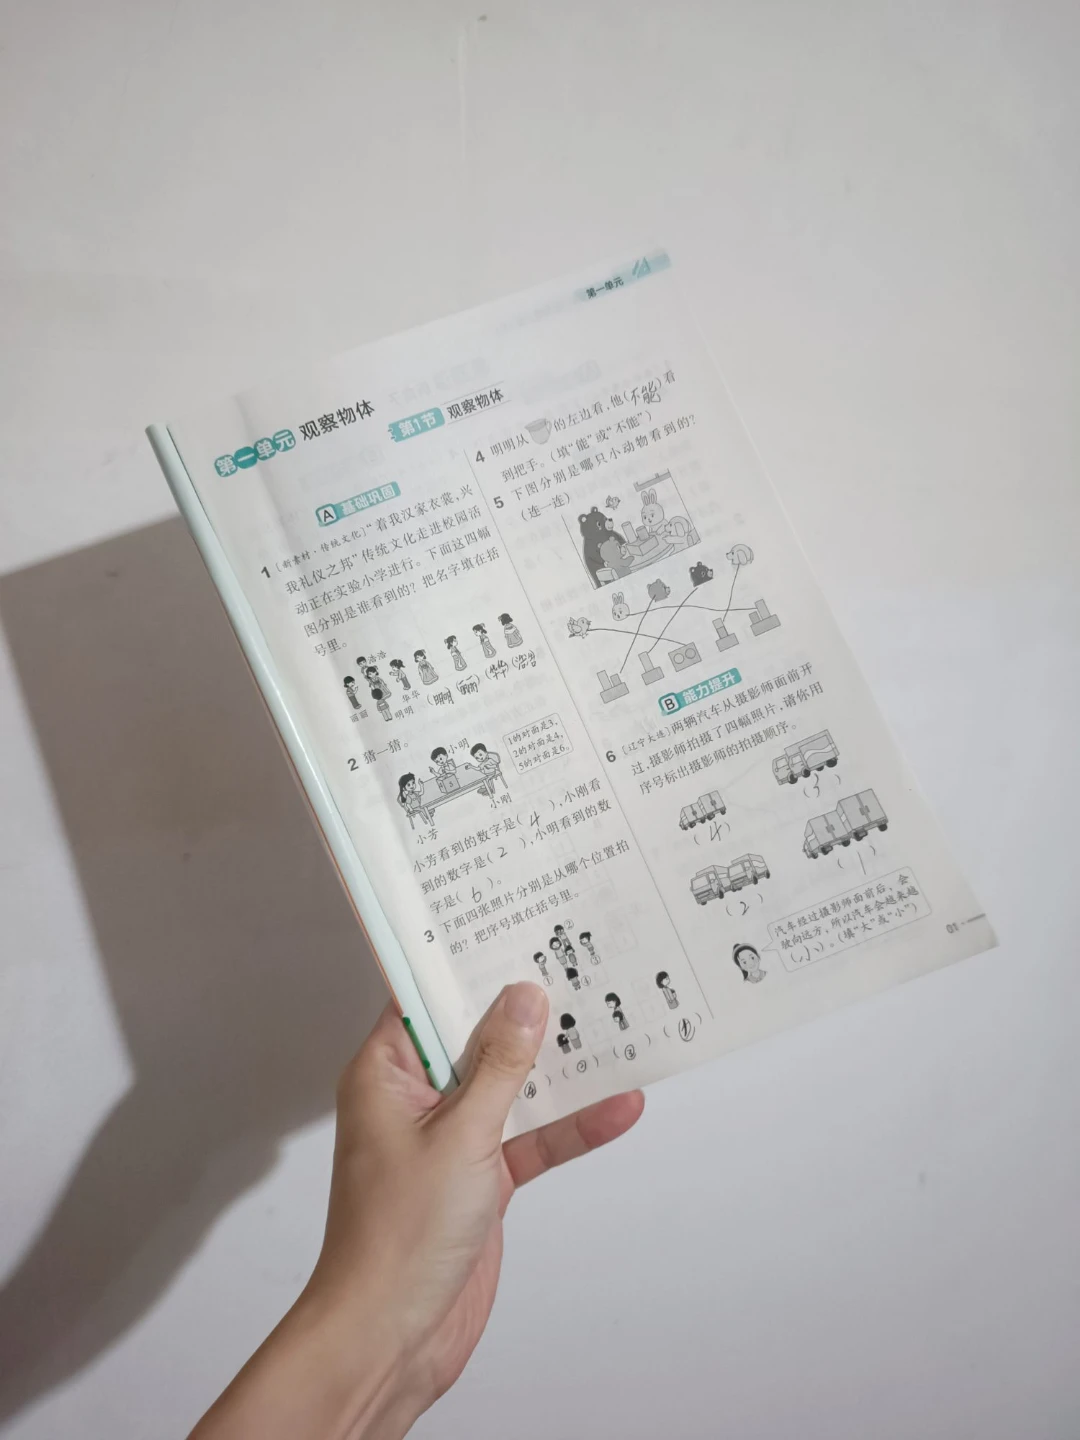 第一单元
第一单元 观察物体
第1节 观察物体
A 基础巩固
1 〔新素材·传统文化〕“着我汉家衣裳,兴
我礼仪之邦”传统文化走进校园活
动正在实验小学进行。下面这四幅
图分别是谁看到的?把名字填在括
号里。
浩浩
丽丽
华华
明明
(明明)(丽丽)(华华)(浩浩)
2 猜一猜。
小明
1的对面是3,
2的对面是4,
5的对面是6。
小刚
小芳
小芳看到的数字是( 4 ),小刚看
到的数字是( 2 ),小明看到的数
字是( 6 )。
3 下面四张照片分别是从哪个位置拍
的?把序号填在括号里。
②
①
③
④
(④)(②)(③)(①)
4 明明从
的左边看,他(不能)看
到把手。(填“能”或“不能”)
5 下图分别是哪只小动物看到的?
(连一连)
B 能力提升
6 〔辽宁大连〕两辆汽车从摄影师面前开
过,摄影师拍摄了四幅照片,请你用
序号标出摄影师的拍摄顺序。
(3)
(4)
(1)
(2)
汽车经过摄影师面前后,会
驶向远方,所以汽车会越来越
(小)。(填“大”或“小”)
01